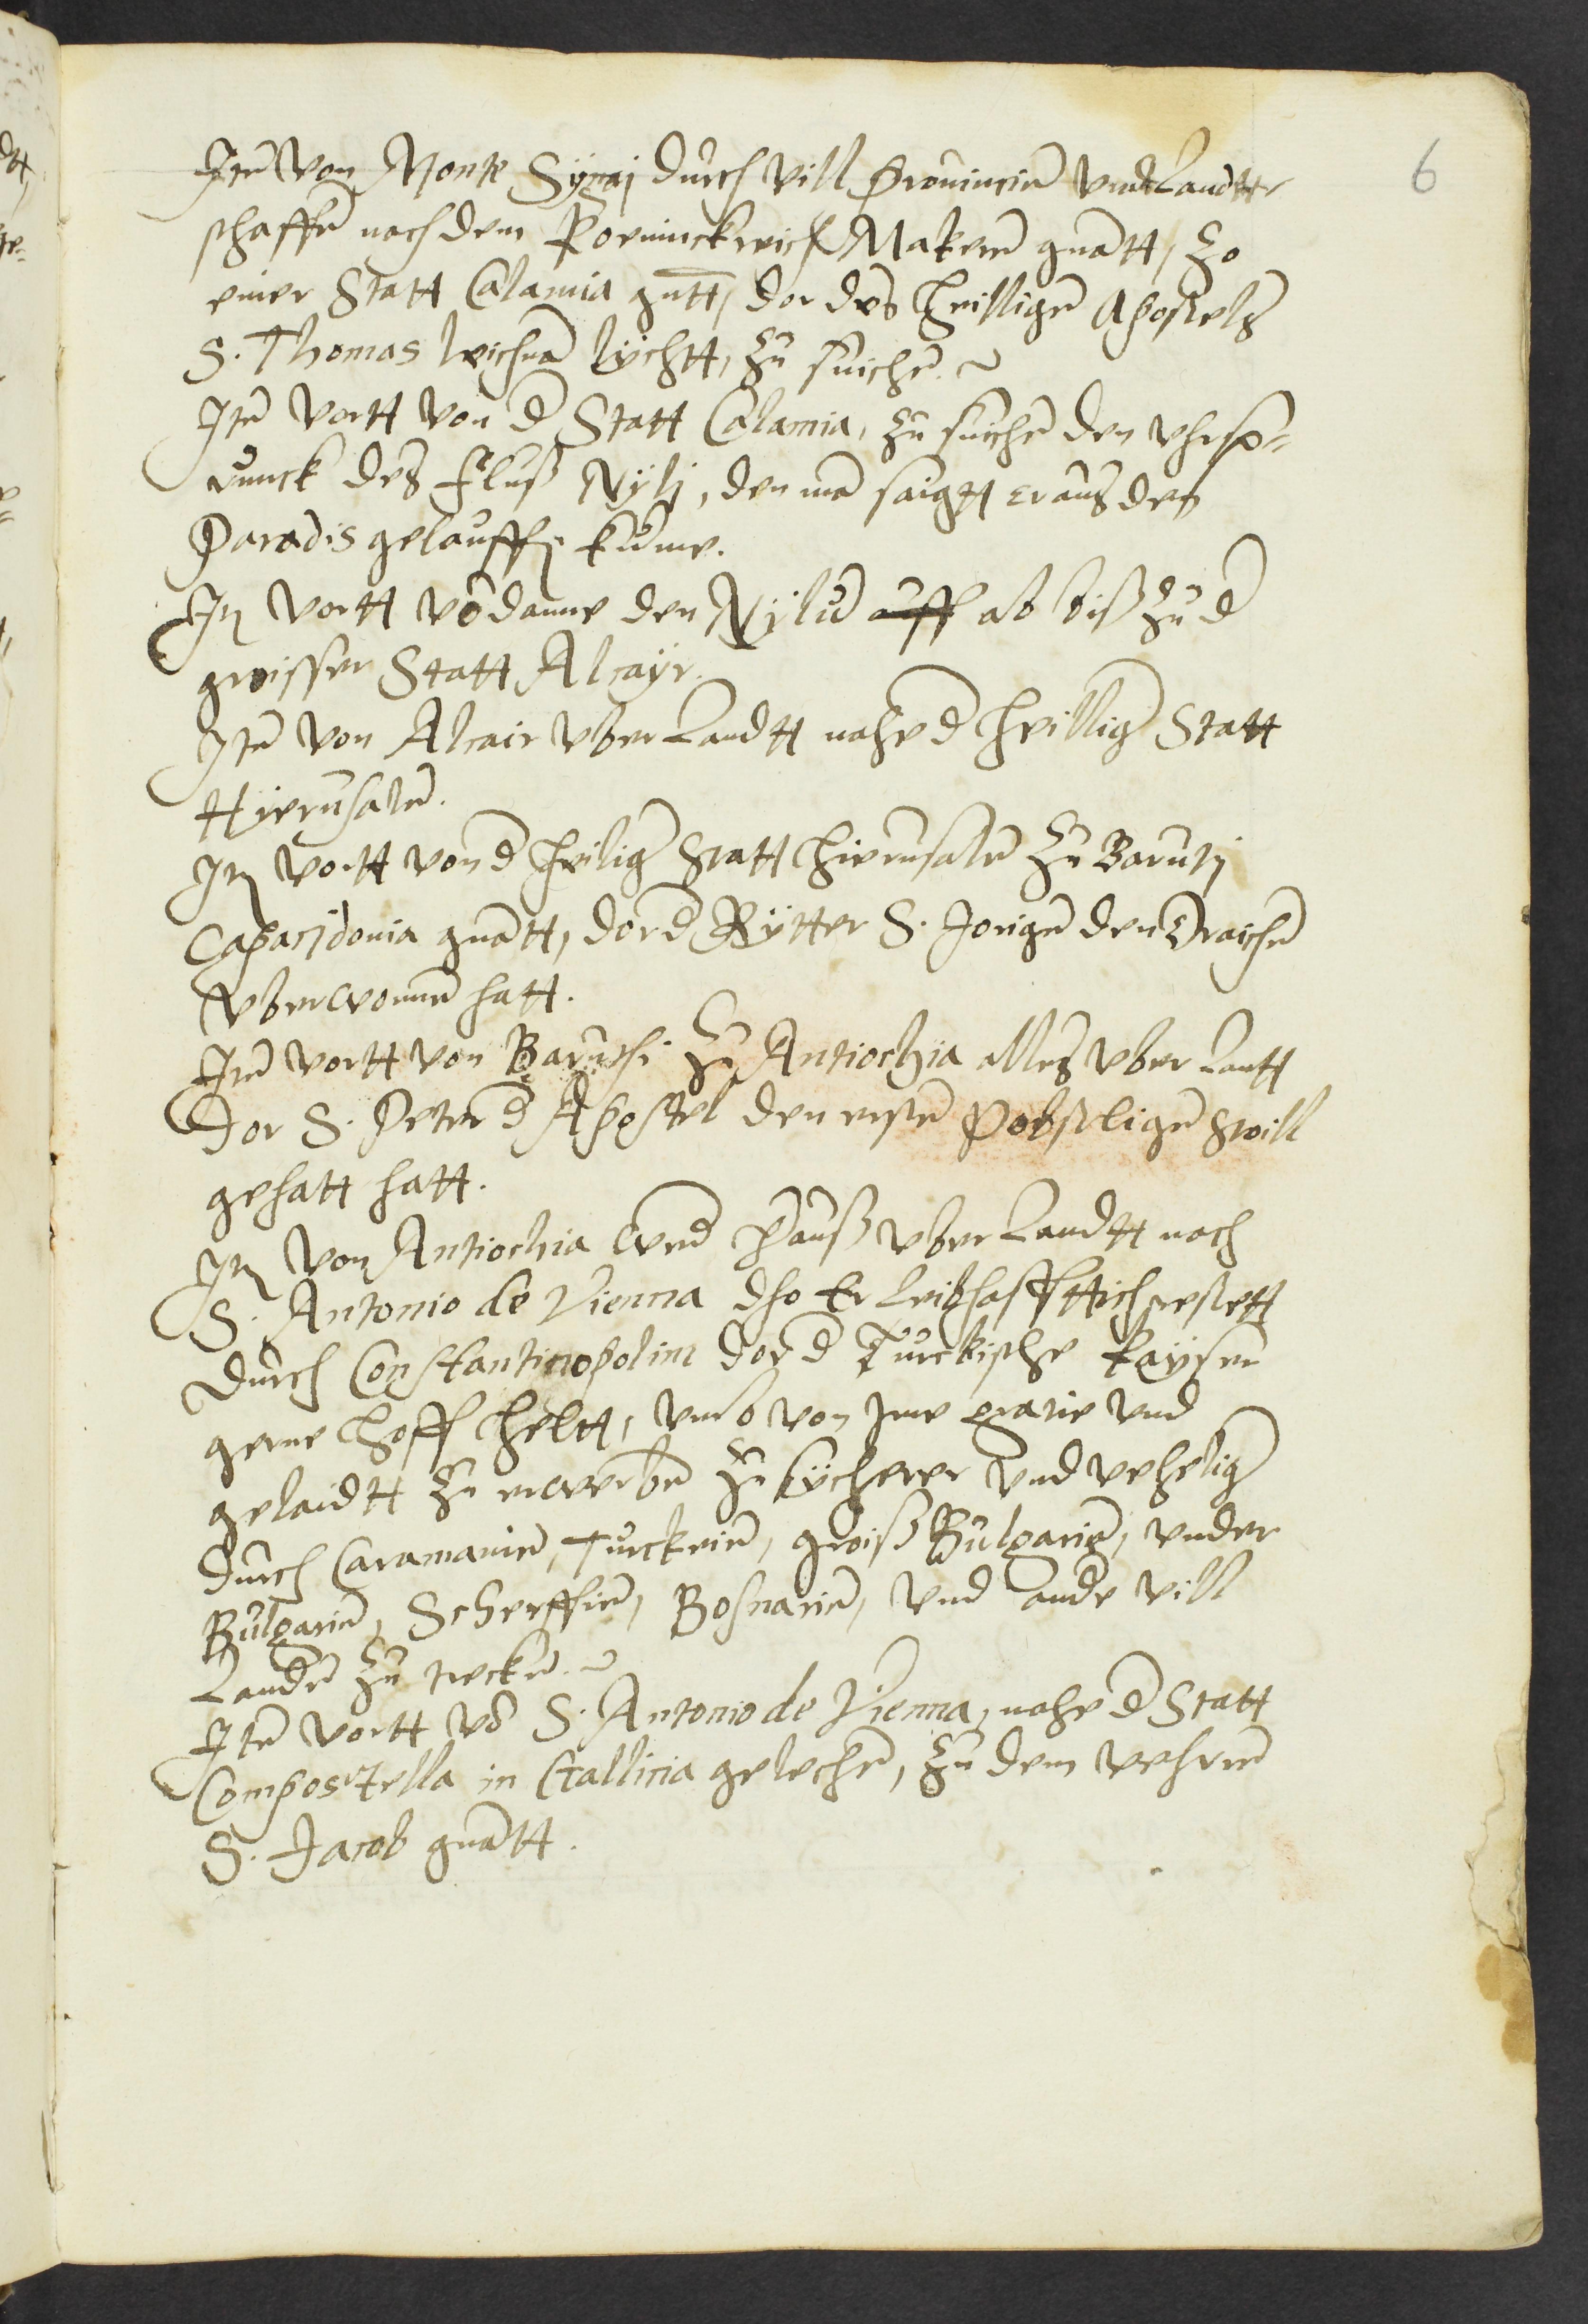 6
Itẽ von Monte Sÿnaj durch vill Prouincien vndt Landtt
schafften nach dem Koeninckreich Makeren gnãtt, zo
einer Statt Calamia gnãtt, dor des heilligen Apostels
S. Thomas leichnã lÿchtt, zu suichen.
Itẽ vortt von d Statt Calamia, zu suichen den vhrsp=
runck des fluß Nÿlj, den mã saigtt er aus den
Paradis gelauffen kume.
Itẽ vortt võ danne den Nÿlũ auff ab biß zu d
groisser Statt Alcaÿr.
Itẽ von Alcair vber Landtt nahe d heillig Statt
Hierusalem.
Itẽ vortt von d heilig Statt Hierusalem zu Barutj
Capacidonia gnãtt, dor d Rÿtter S. Jorigen den Draichen
vberwonnen hatt.
Itẽ vortt von Baruthi zu Antiochia alles vber Lantt
Dor S. Peter d Apostel den ersten Pobstligen stoill
gehatt hatt.
Itẽ von Antiochia vber Landtt nach
S. Antonio de Vienna dho Er leibhafftich restett
durch Constantinopolim dor d Turckische kaÿser
gerne hoff heltt, vmb von jme gratie vnd
gelaidtt zu erwerben zu sÿcherer vnd vehelig
durch Caramanien, Turckeien, groiß Bulgarien, vnder
Bulgarien, Scherffien, Bosnarien, vnd ande vill
Landen zu trecken.
Itẽ vortt võ S. Antonio de Vienna, nahe d Statt
Compostella in Gallicia gelechen, zu dem vehrren
S. Jacob gnãtt.